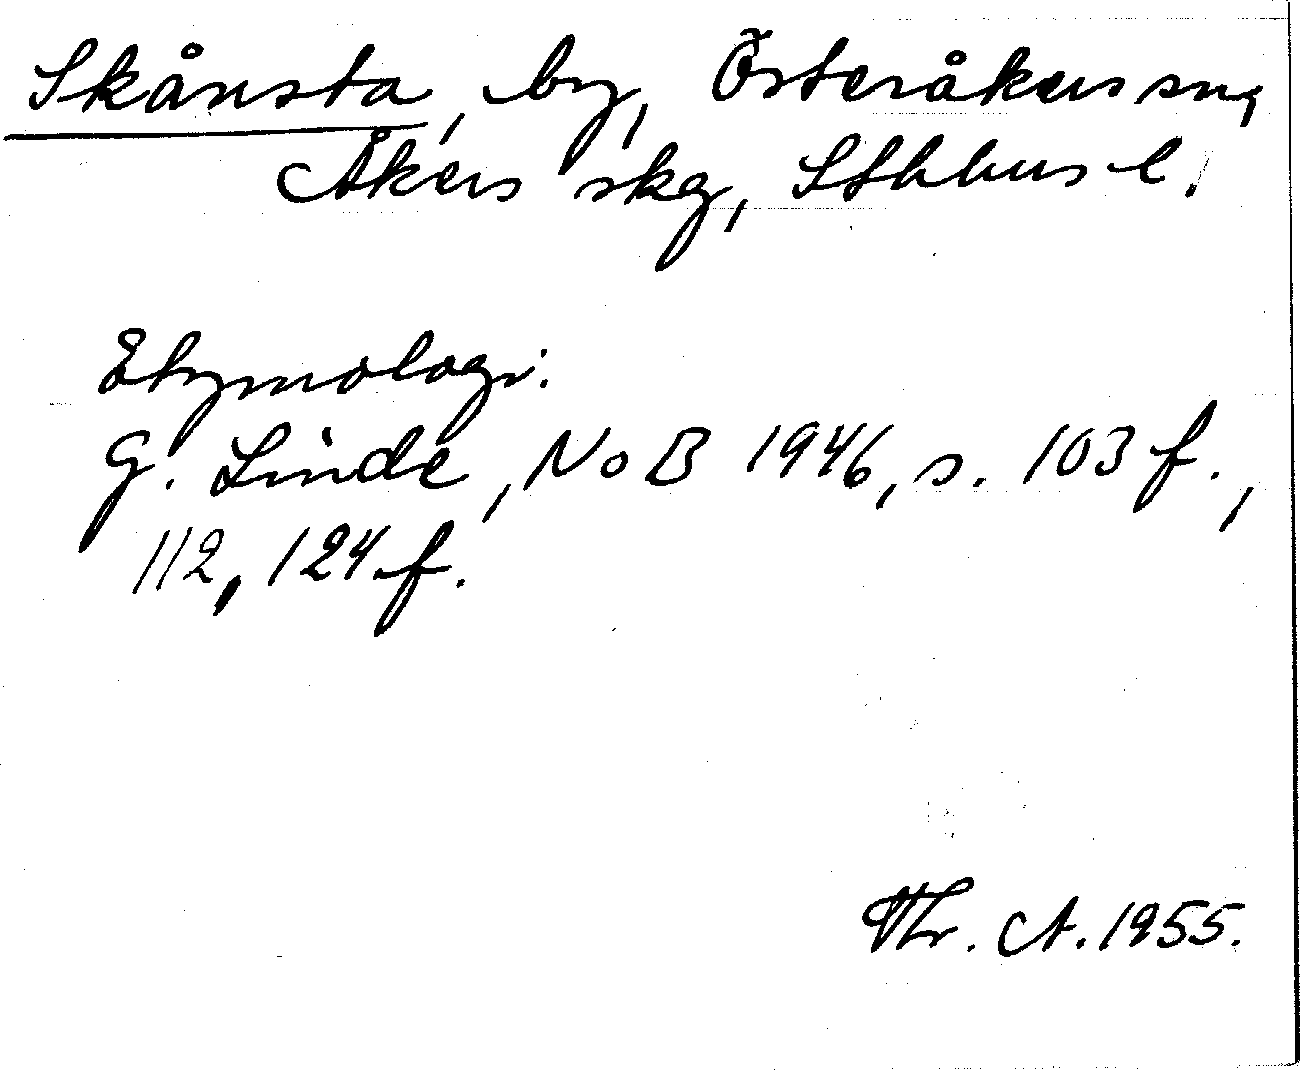 Skånsta, by, Österåkers sn,
Åkers skg, Sthlms l.
Etymologi:
G. Linde, NoB 1946, s. 103 f.,
112, 124 f.
Thr. A. 1955.